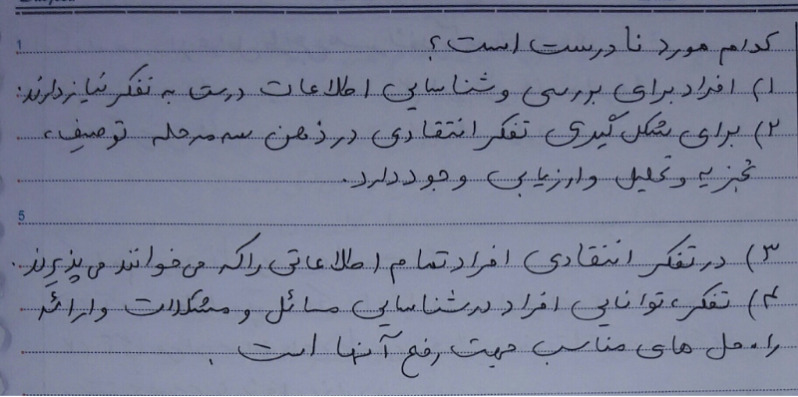 کدام مورد نادرست است؟
1
۱) افراد برای بررسی و شناسایی اطلاعات درست به تفکر نیاز دارند.
۲) برای شکل گیری تفکر انتقادی در ذهن سه مرحله توصیف،
تجزیه و تحلیل و ارزیابی وجود دارد.
5
۳) در تفکر انتقادی افراد تمام اطلاعاتی را که می‌خوانند می‌پذیرند.
۴) تفکر، توانایی افراد در شناسایی مسائل و مشکلات و ارائه
راه حل های مناسب جهت رفع آنها است.